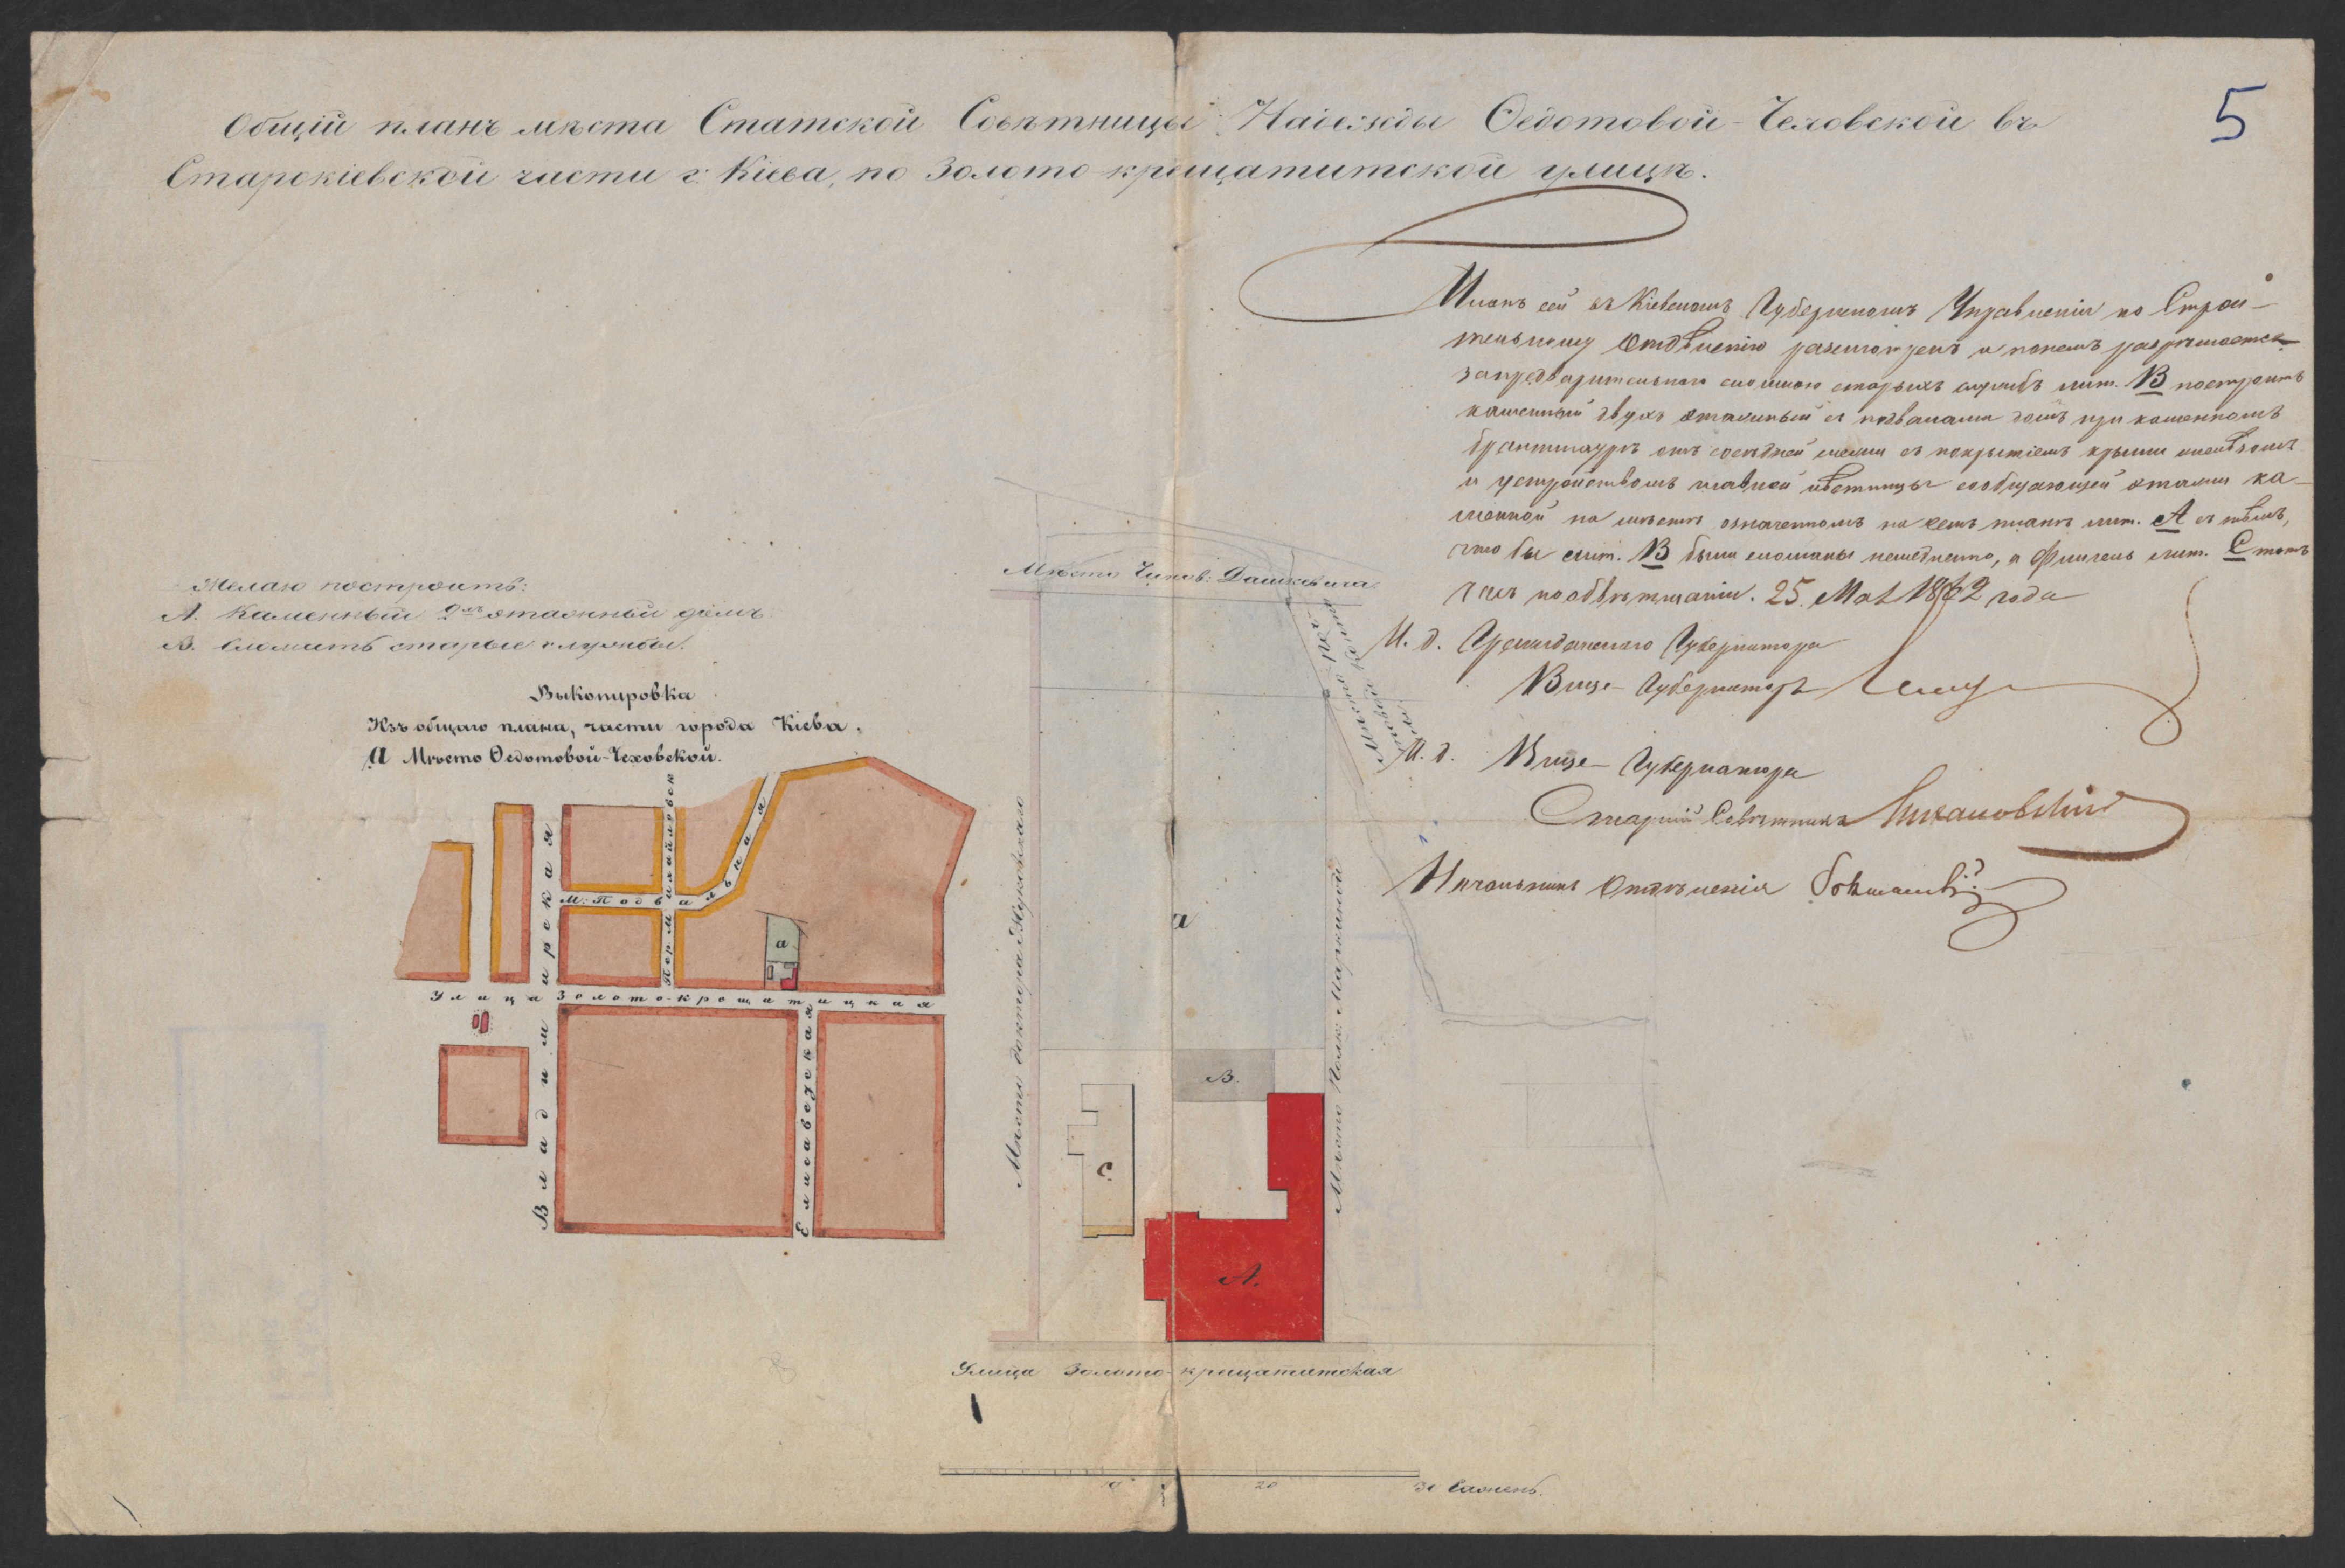 5
Общій планъ мѣста Статской Совѣтницы Надежды Ѳедотовой-Чеховской въ
Старокіевской части г. Кіева, по Золото-крещатитской улицѣ.
Планъ сей въ Кіевскомъ Губернскомъ Управленіи по Строи-
тельному Отдѣленію разсмотренъ и по немъ разрѣшается
запредварительною сломкою старыхъ службъ лит. В построить
каменный двухъ этажный съ подвалами домъ при каменномъ
брантмаурѣ отъ соседней межи съ покрытіемъ крыши желѣзомъ
и устройствомъ главной лѣстницы сообщающей этажи ка-
менной на мѣстѣ означенномъ на семъ планѣ лит. А съ тѣмъ,
что бы лит. В были сломаны немедленно, а Флигель лит. С
25 Мая 18 2 года
И. д. Гражданскаго Губернатора
Вице-Губернаторъ
И. д. Вице-Губернатора
Старшій Совѣтникъ
Начальникъ Отдѣленія
Желаю построить:
А. Каменный 2хъ этажный домъ
В. Сломать старые службы.
Выкопировка
Изъ общаго плана, части города Кіева.
а Мѣсто Ѳедотовой-Чеховской.
М: Подвальная
Владимирская
Улица Золото-крещатицкая
Елисаветская
а
Мѣсто Чинов: Дашкевича
Мѣсто доктора Жуковскаго
Мѣсто Полк: Маркиной
а
В.
С
А.
Улица Золото-крещатитская
10 20 30 Сажень.